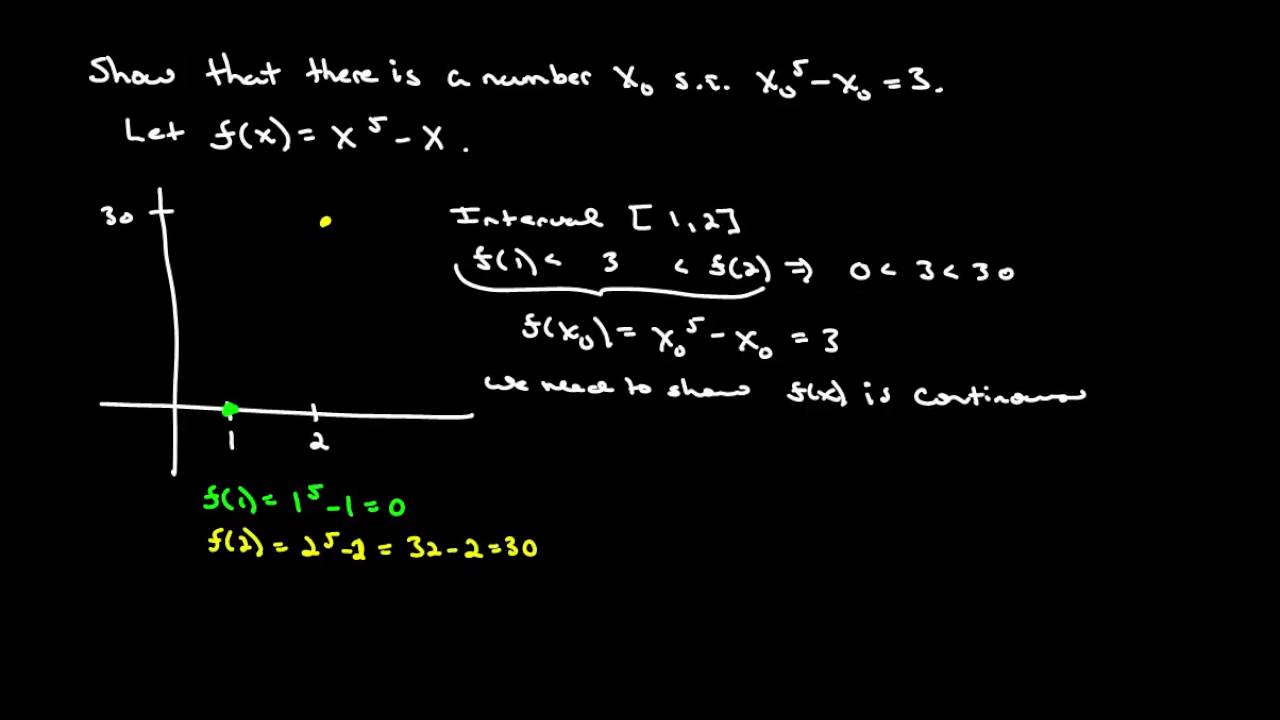 Show that there is a number x₀ s.t. x₀⁵ - x₀ = 3.
Let f(x) = x⁵ - x.
30
Interval [1,2]
f(1) < 3 < f(2) ⇒ 0 < 3 < 30
f(x₀) = x₀⁵ - x₀ = 3
we need to show f(x) is continuous
1 2
f(1) = 1⁵ - 1 = 0
f(2) = 2⁵ - 2 = 32 - 2 = 30